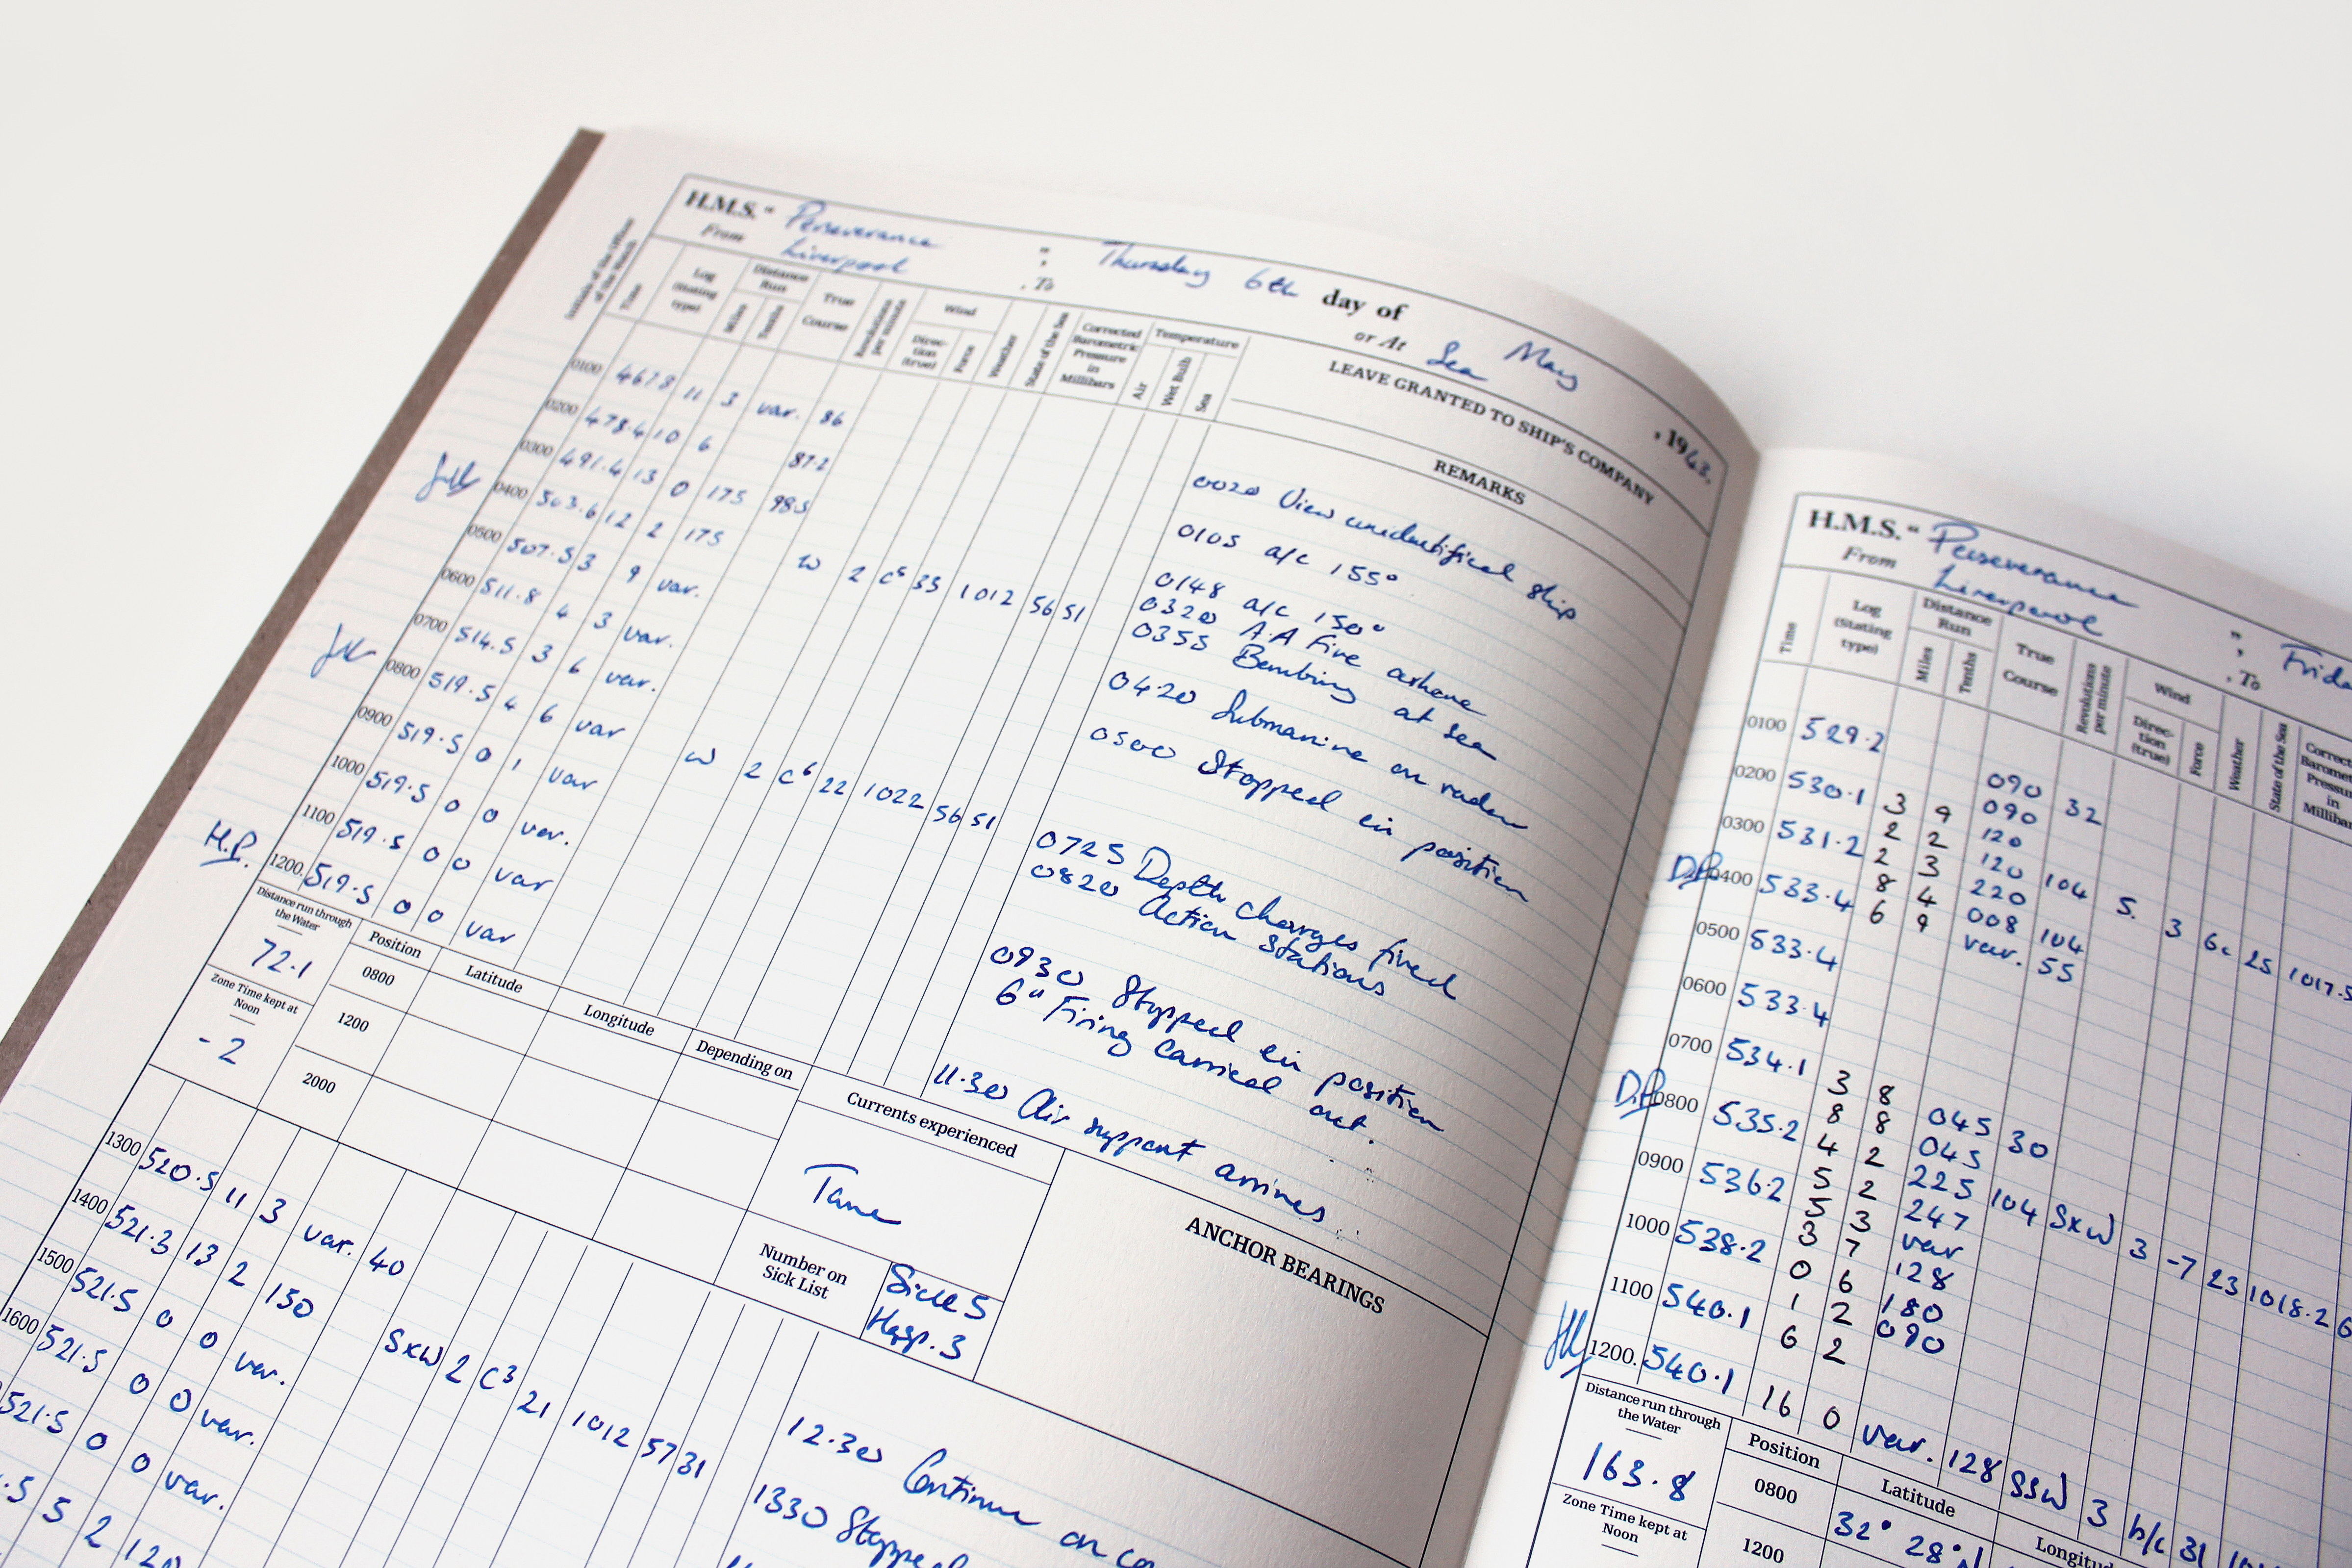 H.M.S. " Perseverance " Thursday 6th day of May, 1943.
From Liverpool, To or At Sea
Initials of the Officer of the Watch
Time
Log (Stating type)
Distance Run
Miles
Tenths
True Course
Revolutions per minute
Wind
Direction (true)
Force
Weather
State of the Sea
Corrected Barometric Pressure in Millibars
Temperature
Air
Wet Bulb
Sea
LEAVE GRANTED TO SHIP'S COMPANY
REMARKS
0100 467.8 11 3 var. 86
0200 478.4 10 6 87.2
0300 491.4 13 0 175 98.5
0400 503.6 12 2 175 W 2 c6 33 1012 56 51
0500 507.5 3 9 var.
0600 511.8 4 3 var.
0700 514.5 3 6 var.
0800 519.5 4 6 var W 2 c6 22 1022 56 51
0900 519.5 0 1 var
1000 519.5 0 0 var.
1100 519.5 0 0 var
H.P. 1200. 519.5 0 0 var
0020 View unidentified ship
0105 a/c 155°
0148 a/c 150°
0320 A.A Fire
0355 Bombing at sea
0420 Submarine on radar
0500 Stopped in position
0725 Depth charges fired
0820 Action Stations
0930 Stopped in position
6" Firing carried out.
11.30 Air support arrives
Distance run through the Water
72.1
Zone Time kept at Noon
-2
Position
Latitude
Longitude
Depending on
0800
1200
2000
Currents experienced
Number on Sick List
Sick 5
Hosp. 3
ANCHOR BEARINGS
1300 520.5 11 3 var. 40
1400 521.3 13 2 150
1500 521.5 0 0 var.
1600 521.5 0 0 var. SxW 2 c3 21 1012 57 31
521.5 0 0 var.
.5 5 2 120
12.30 Continue on co
1330 Stopped
H.M.S. " Perseverance " Frida
From Liverpool, To
Time
Log (Stating type)
Distance Run
Miles
Tenths
True Course
Revolutions per minute
Wind
Direction (true)
Force
Weather
State of the Sea
Correct
Baromet
Pressure
in
Milliba
0100 529.2
0200 530.1 3 9 090 32
2 2 090
0300 531.2 2 3 120
D.P. 0400 533.4 8 4 120 104 S. 3 6c 25 1017.5
6 9 220
008 104
0500 533.4 var. 55
0600 533.4
0700 534.1 3 8
D.P. 0800 535.2 8 8 045 30
4 2 045
0900 536.2 5 2 225 104 SxW 3 -7 23 1018.2 6
5 3 247
1000 538.2 3 7 var
0 6 128
1100 540.1 1 2 180
6 2 090
1200. 540.1 16 0 var. 128 SSW 3 b/c 31
Distance run through the Water
163.8
Zone Time kept at Noon
Position
Latitude
Longitu
0800 32° 28'N
1200